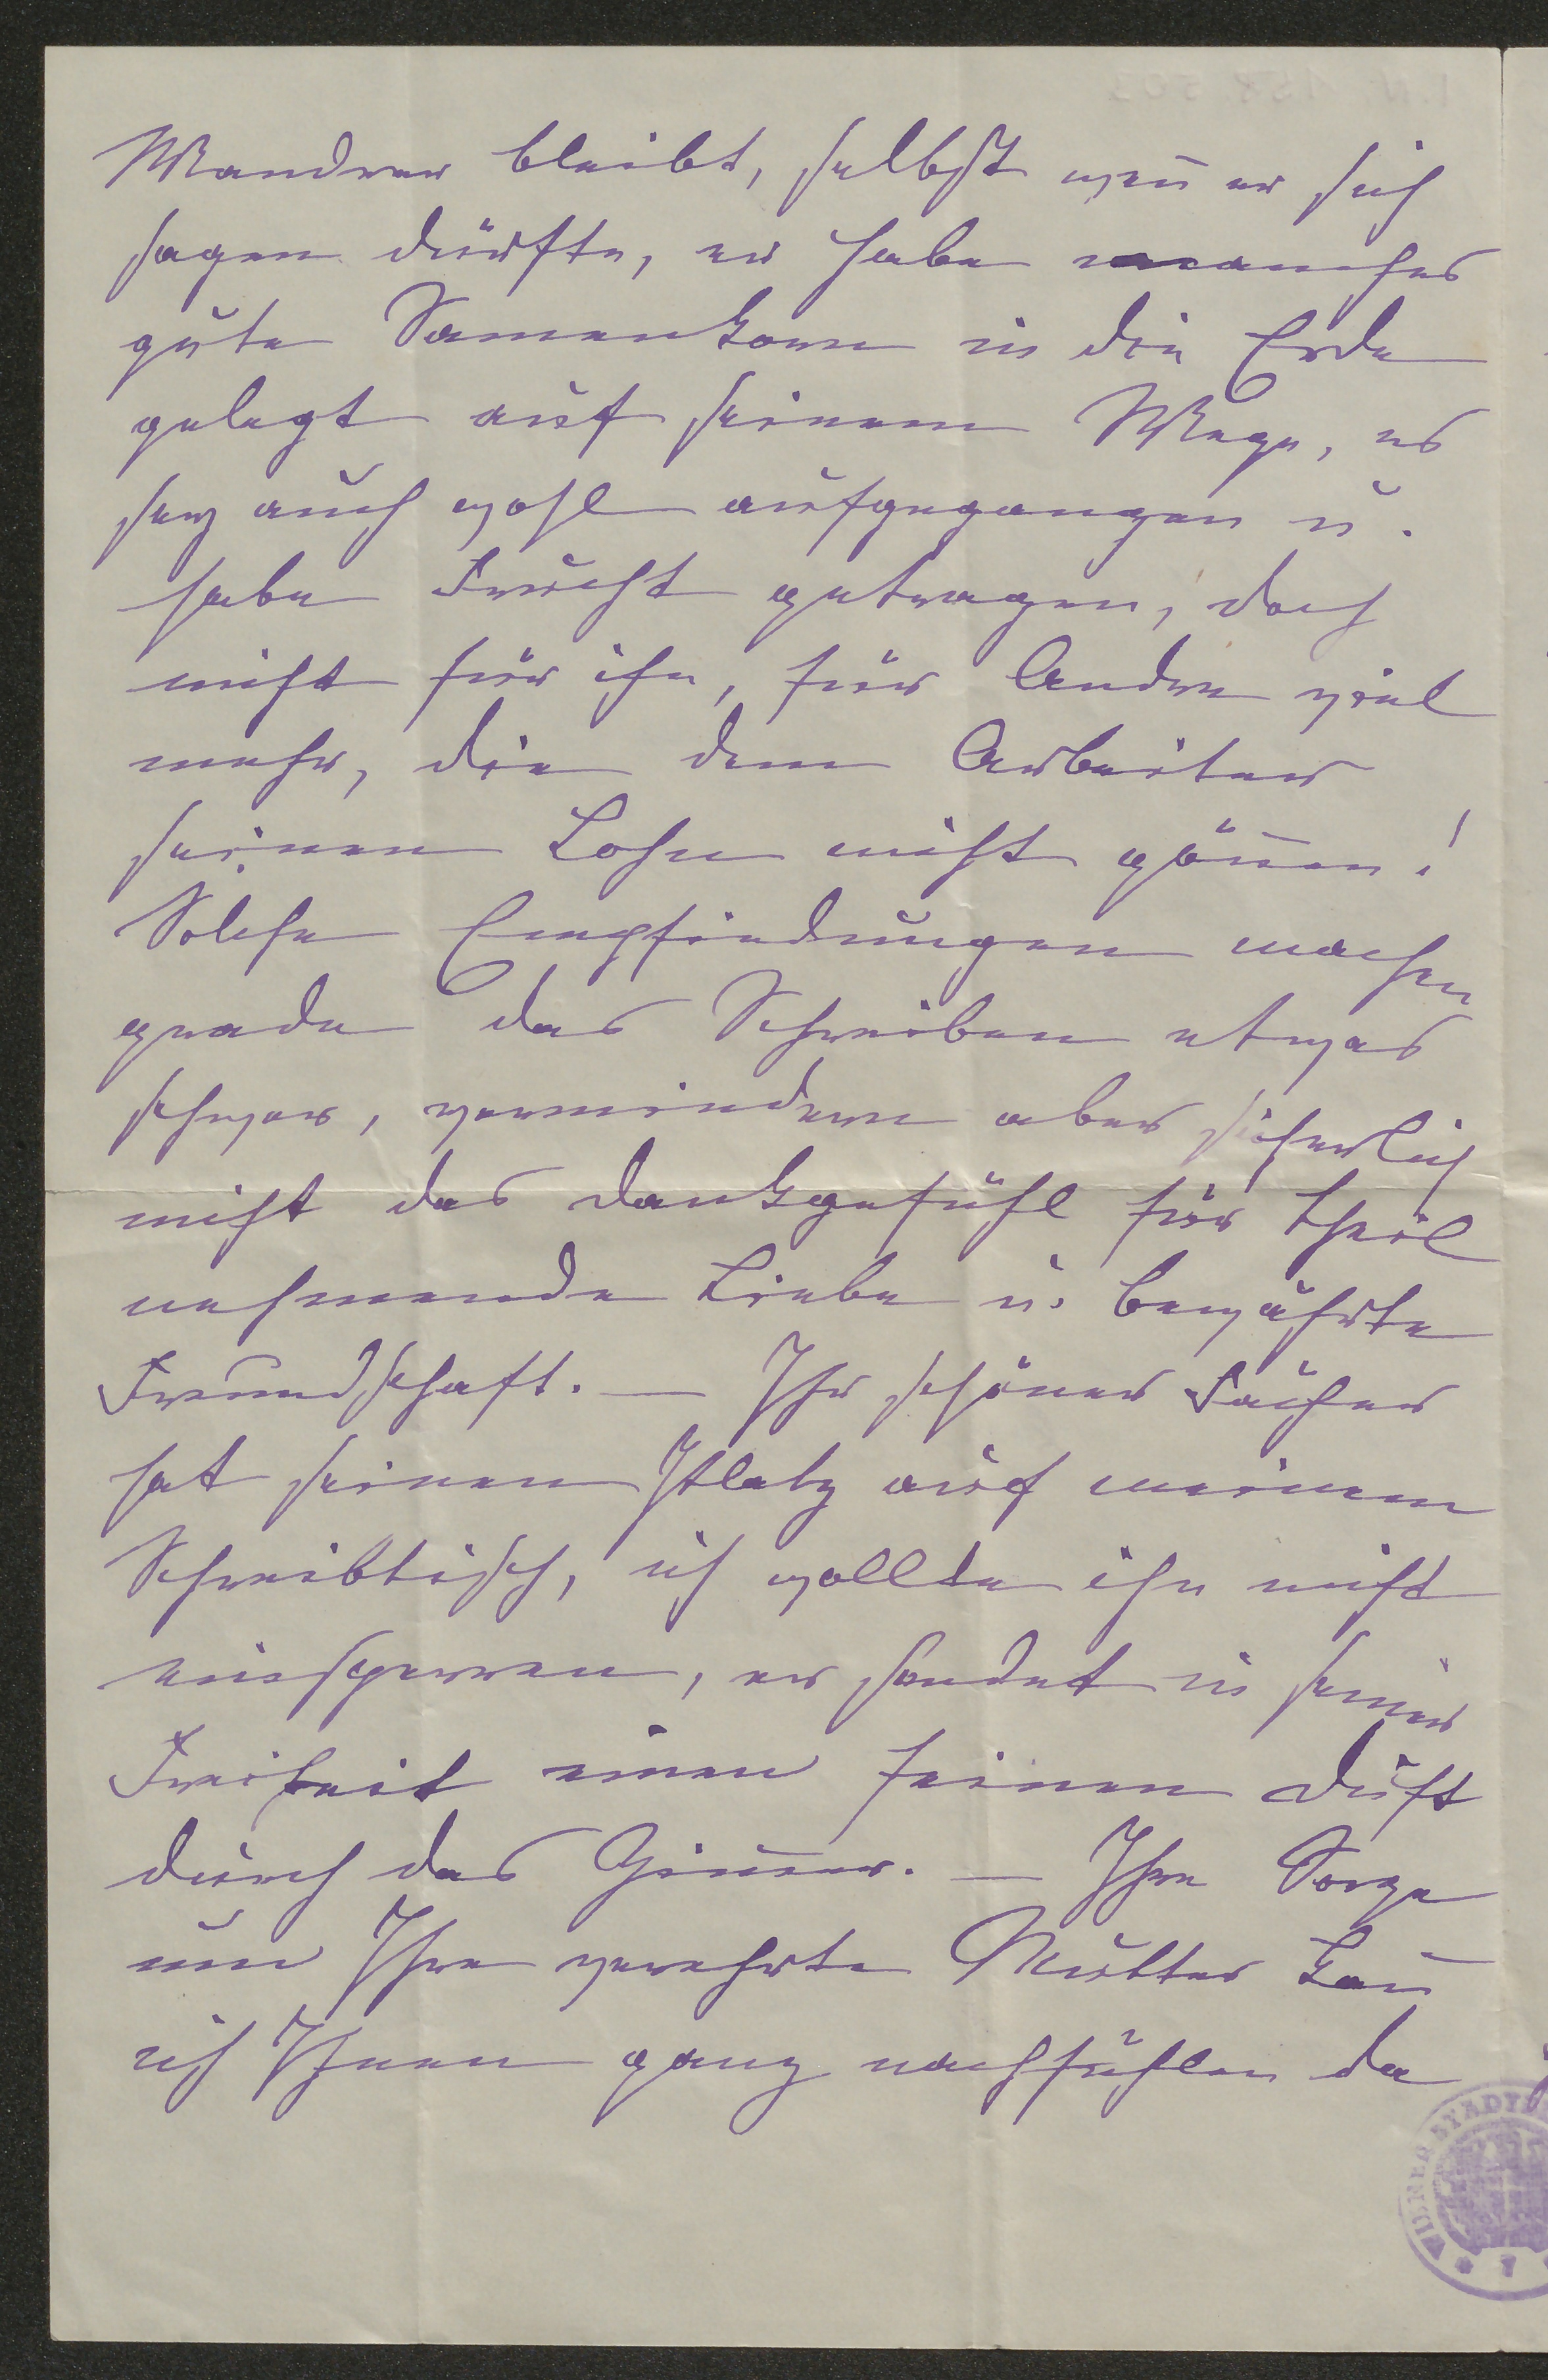 Wandrer bleibt, selbst weñ er sich
sagen dürfte, er habe manches
gute Samenkorn in die Erde
gelegt auf seinem Wege, es
sey auch wohl aufgegangen u.
habe Frucht getragen, doch
nicht für ihn, für Andre viel
mehr, die dem Arbeiter
seinen Lohn nicht göñen!
Solche Empfindungen machen
grade das Schreiben etwas
schwer, vermindern aber sicherlich
nicht das Dankgefühl für theil
nehmende Liebe u. bewährte
Freundschaft. — Ihr schöner Fächer
hat seinen Platz auf meinem
Schreibtisch, ich wollte ihn nicht
einsperren, er sendet in seiner
Freiheit einen feinen Duft
durch das Zim̃er. — Ihre Sorge
um Ihre verehrte Mutter kañ
ich Ihnen ganz nachfühlen da
WIENER STADT
7